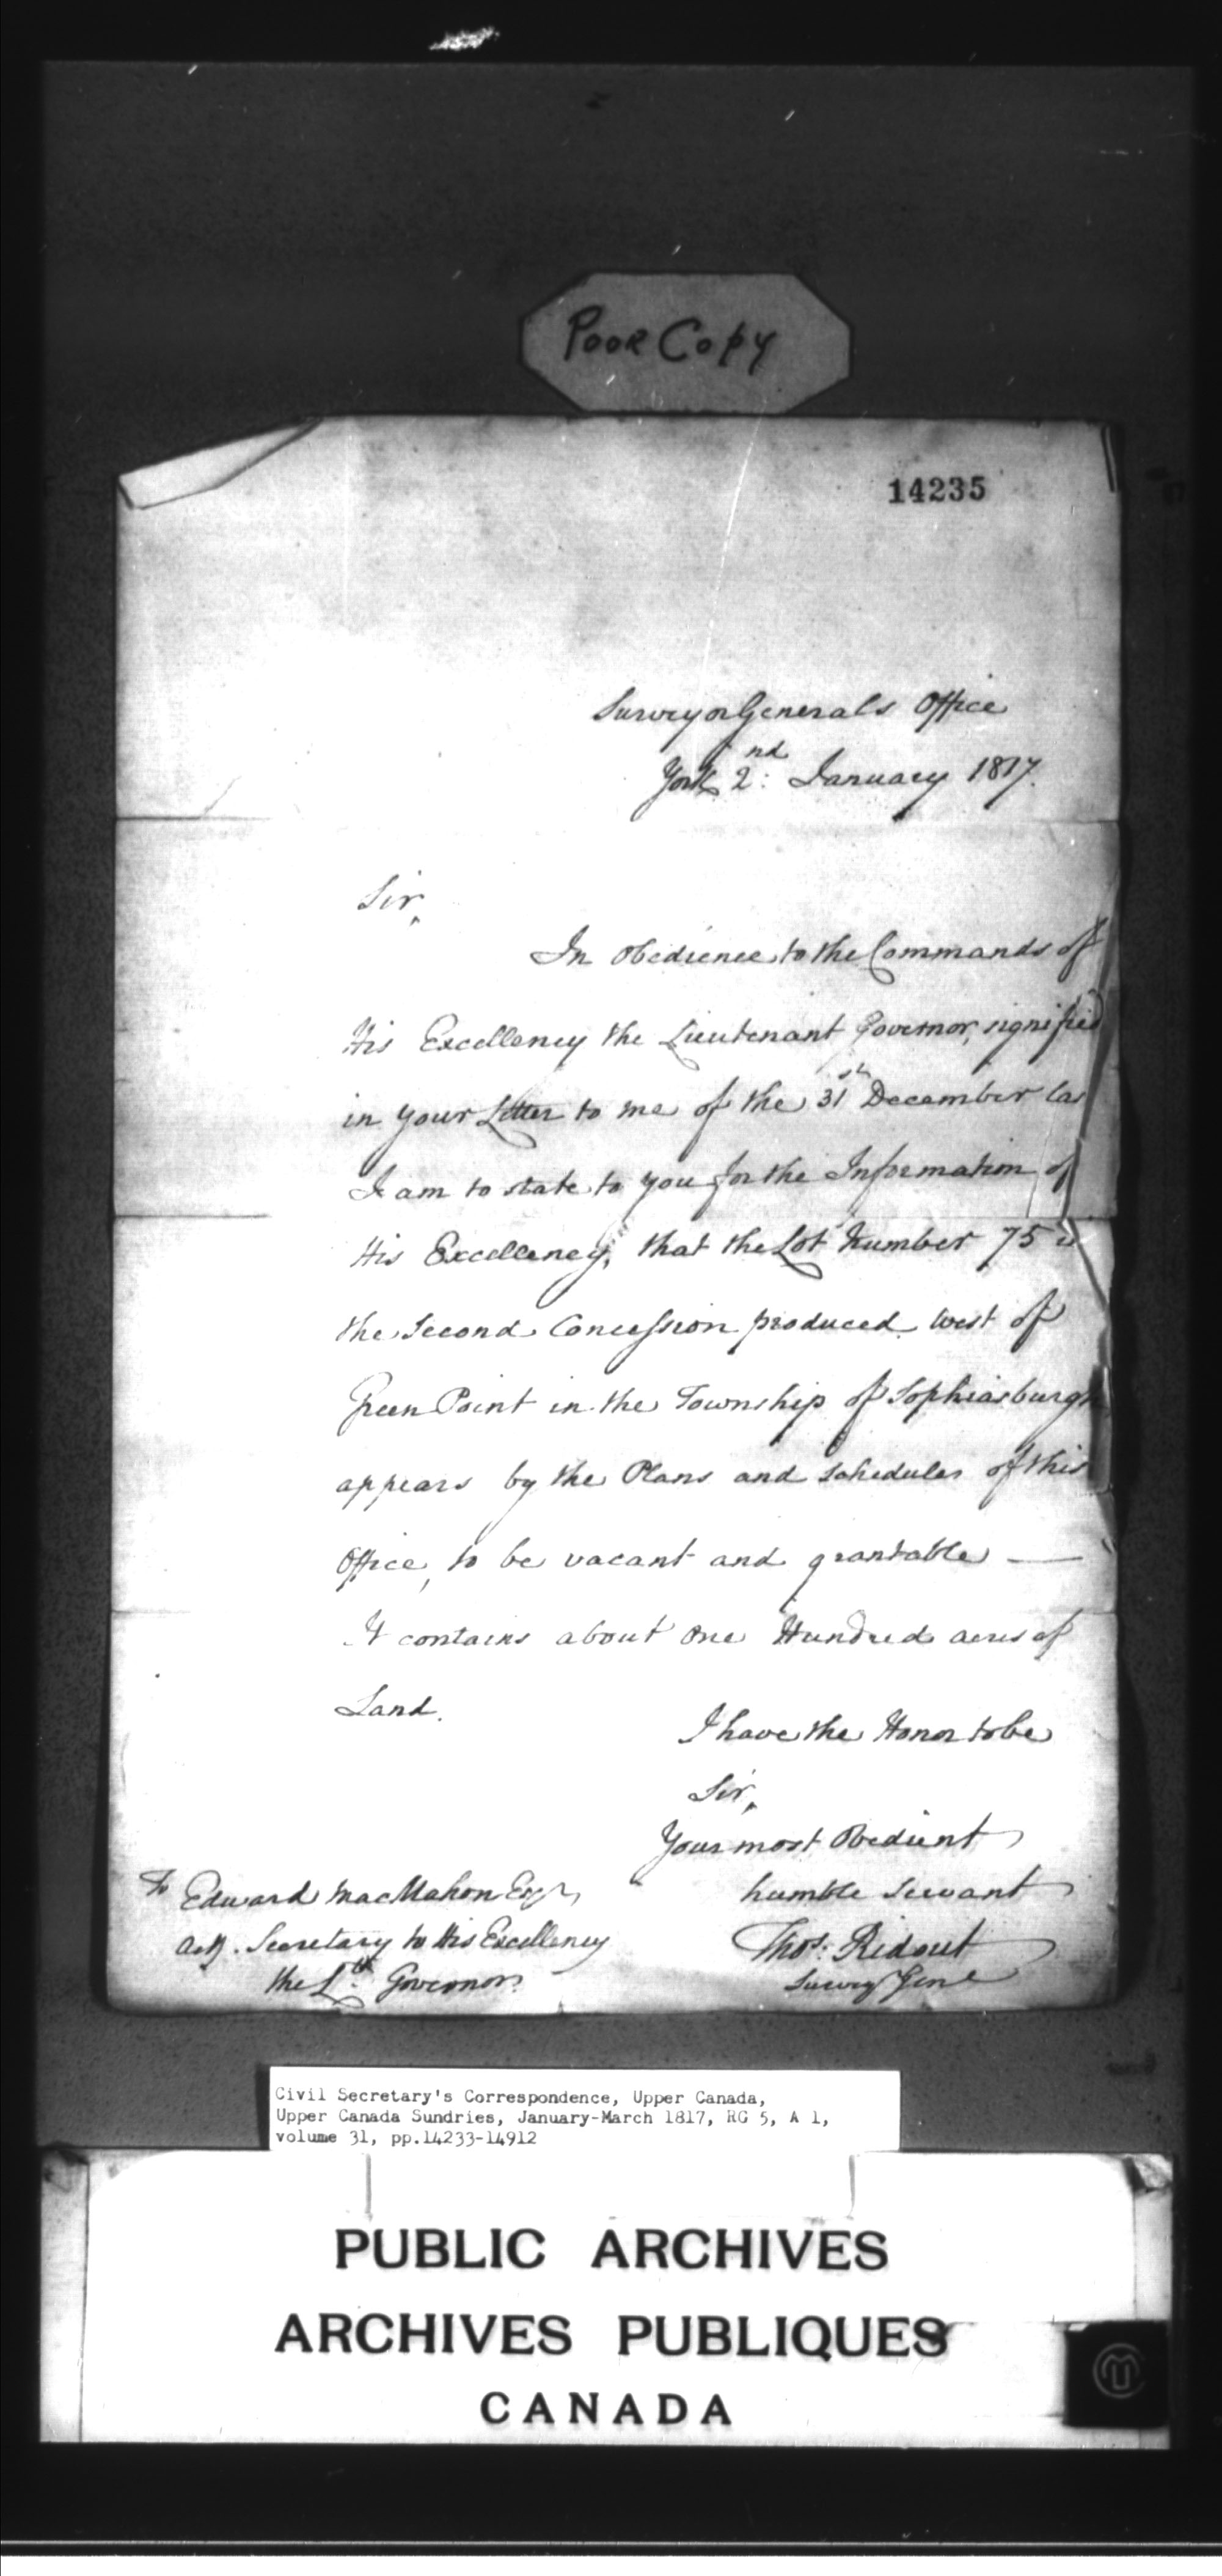 Poor Copy
14235
Surveyor Generals Office
York 2nd: January 1817.
Sir,
In Obedience to the Commands of
His Excellency the Lieutenant Governor, signified
in your Letter to me of the 31st December las
I am to state to you for the Information of
His Excellency, that the Lot Number 75 i
the Second Concession produced west of
Green Point in the Township of Sophiasburgh
appears by the Plans and Schedules of this
Office, to be vacant and grantable —
It contains about One Hundred acres of
Land.
I have the Honor to be
Sir,
Your most Obedient
humble Servant
Thos: Ridout
Survey Genl
To Edward MacMahon Esqr,
Actg. Secretary to His Excellency
the Lt. Governor
Civil Secretary's Correspondence, Upper Canada,
Upper Canada Sundries, January-March 1817, RG 5, A 1,
volume 31, pp.14233-14912
PUBLIC ARCHIVES
ARCHIVES PUBLIQUES
CANADA